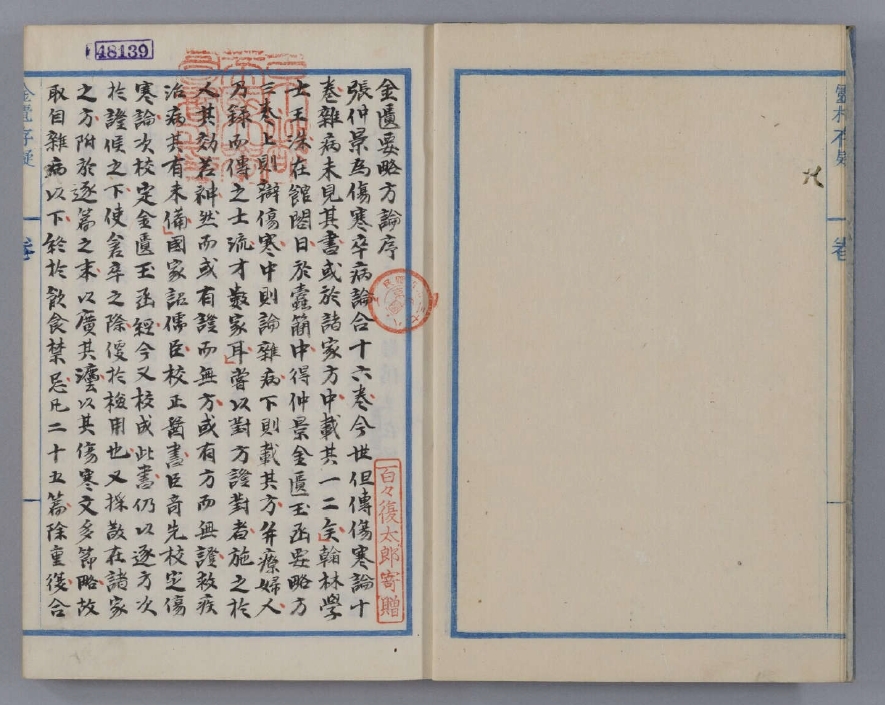 金匱要略方論序
張仲景為傷寒卒病論合十六卷今世但傳傷寒論十
卷雜病未見其書或於諸家方中載其一二矣翰林學
士王洙在館閣日於蠹簡中得仲景金匱玉函要略方
三卷上則辯傷寒中則論雜病下則載其方并療婦人
乃録而傳之士流才數家耳嘗以對方證對者施之於
人其効若神然而或有證而無方或有方而無證救疾
治病其有未備國家詔儒臣校正醫書臣奇先校定傷
寒論次校定金匱玉函經今又校成此書仍以逐方次
於證候之下使倉卒之際便於檢用也又採散在諸家
之方附於逐篇之末以廣其灋以其傷寒文多節略故
取自雜病以下終於飲食禁忌凡二十五篇除重複合
百々復太郎寄贈
48139